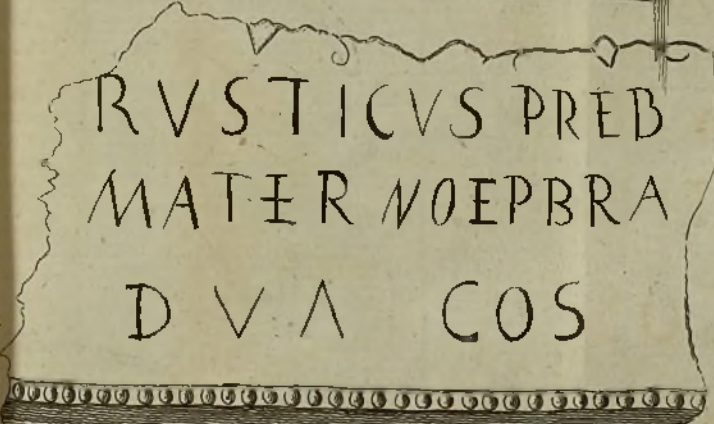 RVSTICVS PREB
MATERNOEPBRA
DVΛ COS